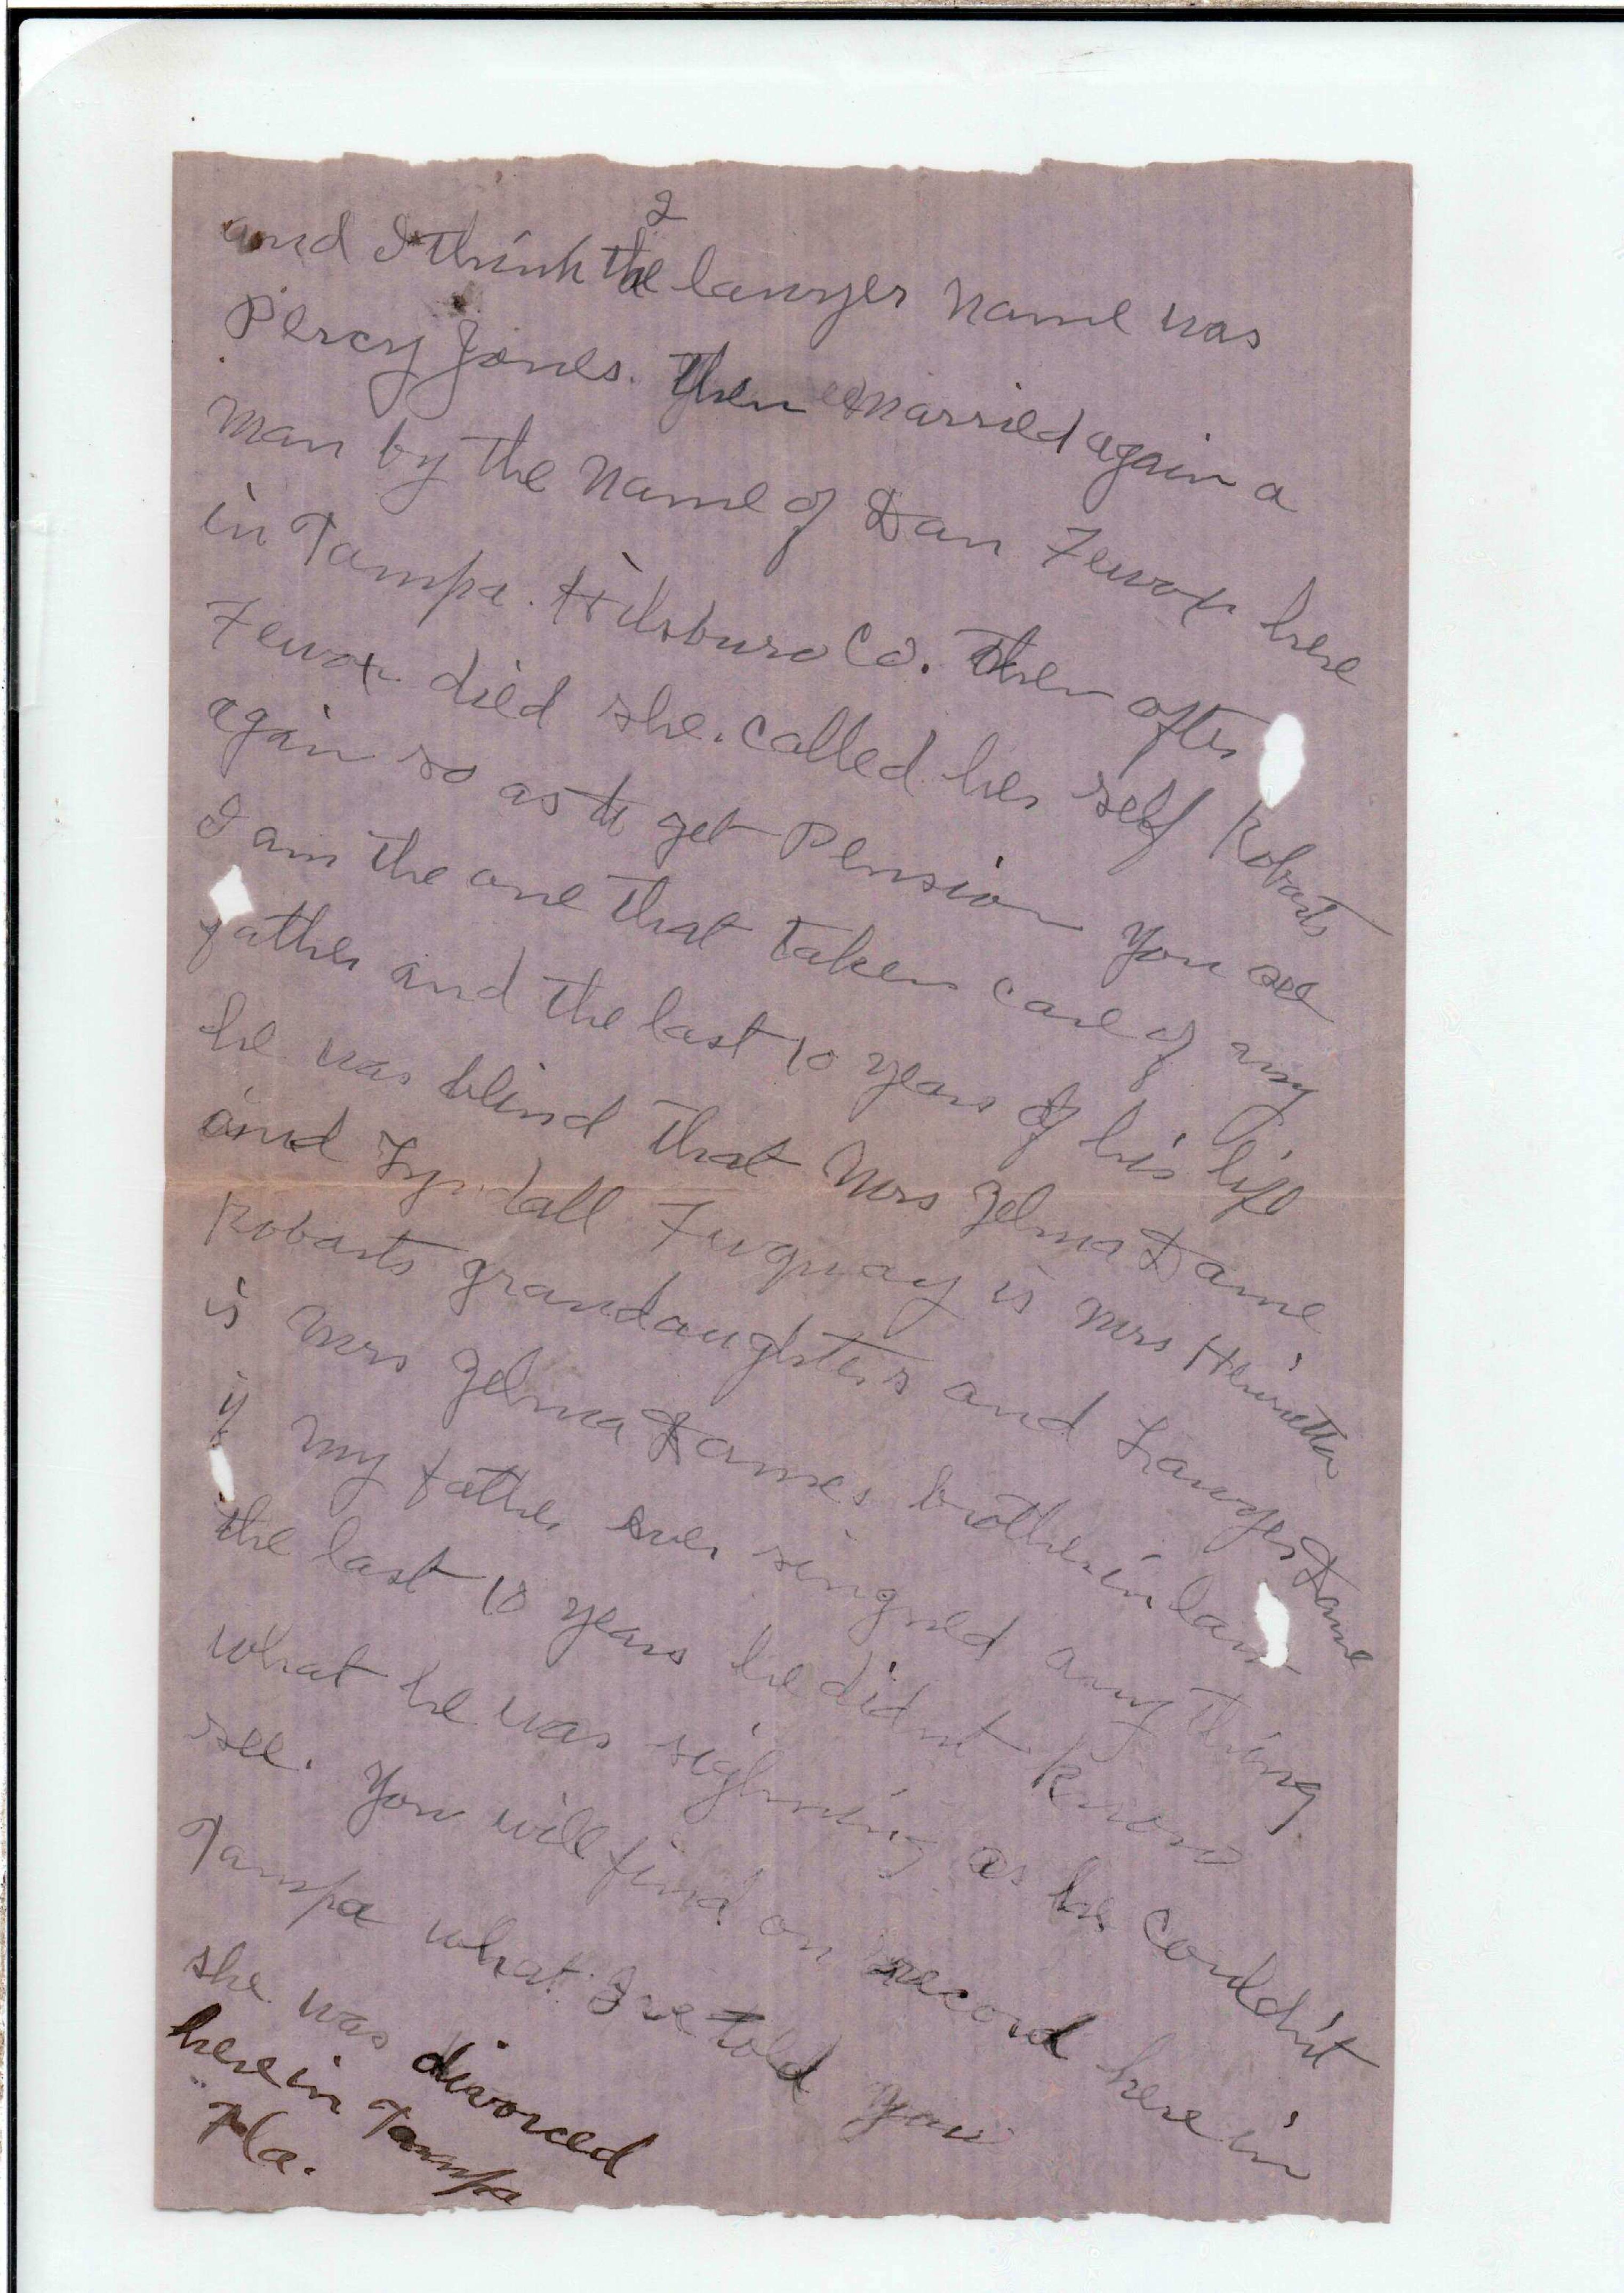 2
and I think the lawyer name was
Percy Jones. Then married again a
man by the name of Dan Fewox here
in Tampa. Hilsburo Co. Then after
Fewox died she called her self Robarts
again so as to get Pension You see
I am the one that taken care of my
father and the last 10 years of his life
he was blind that Mrs Zelma Dame
and Tyndall Fuquay is Mrs Henrietta
Robarts grandaughters and Lawyer Dame
is Mrs Zelma Dames brother in law
if my father ever singned any thing
the last 10 years he didnt know
what he was sighning as he couldn't
see. You will find on record here in
Tampa what I've told you
she was divorced
here in Tampa
Fla.